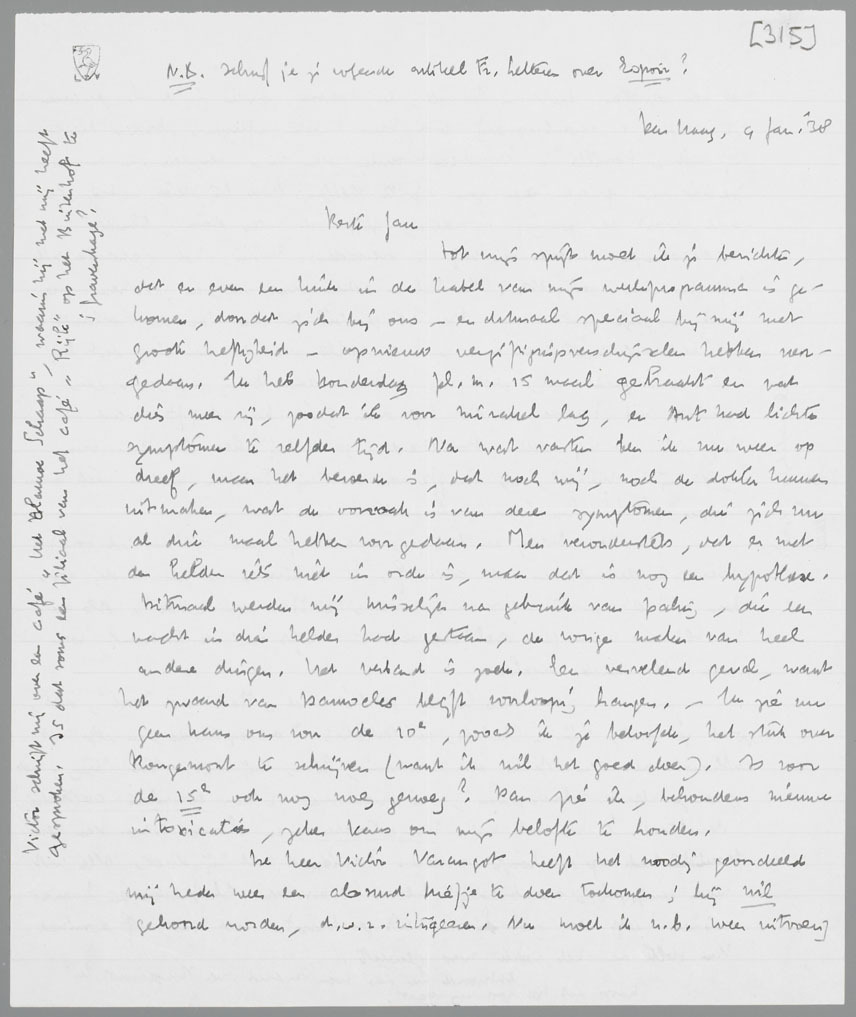 [315]
N.B. Schrijf je je volgende artikel Fr. Letteren over Espoir?
Den Haag, 9 Jan. '38
Beste Jan
Tot mijn spijt moet ik je berichten,
dat er even een kink in de kabel van mijn werkprogramma is ge-
komen, doordat zich bij ons – en ditmaal speciaal bij mij met
groote heftigheid – opnieuw vergiftigingsverschijnselen hebben voor-
gedaan. Ik heb Donderdag pl.m. 15 maal gebraakt en wat
dies meer zij, zoodat ik voor mirakel lag, en Ant had lichte
symptomen te zelfder tijd. Na wat vasten ben ik nu weer op
dreef, maar het beroerde is, dat noch wij, noch de dokter kunnen
uitmaken, wat de oorzaak is van deze symptomen, die zich nu
al drie maal hebben voorgedaan. Men veronderstelt, dat er met
den kelder iets niet in orde is, maar dat is nog een hypothese.
Ditmaal werden wij misselijk na gebruik van paling, die een
nacht in dien kelder had gestaan, de vorige malen van heel
andere dingen. Het verband is zoek. Een vervelend geval, want
het zwaard van Damocles blijft voorloopig hangen. – Ik zie nu
geen kans om voor de 10e, zooals ik je beloofde, het stuk over
Rougemont te schrijven (want ik wil het goed doen). Is voor
de 15e ook nog vroeg genoeg? Dan zie ik, behoudens nieuwe
intoxicaties, zeker kans om mijn belofte te houden.
De heer Victor Varangot heeft het noodig geoordeeld
mij heden weer een absurd briefje te doen toekomen; hij wil
gehoord worden, d.w.z. uitgeven. Nu moet ik n.b. weer uitvoerig
Victor schrijft mij over een café "Het Blauwe Schaap", waarin hij met mij heeft
gesproken. Is dat soms een filiaal van het café "Riche" op het Buitenhof te
's Gravenhage?